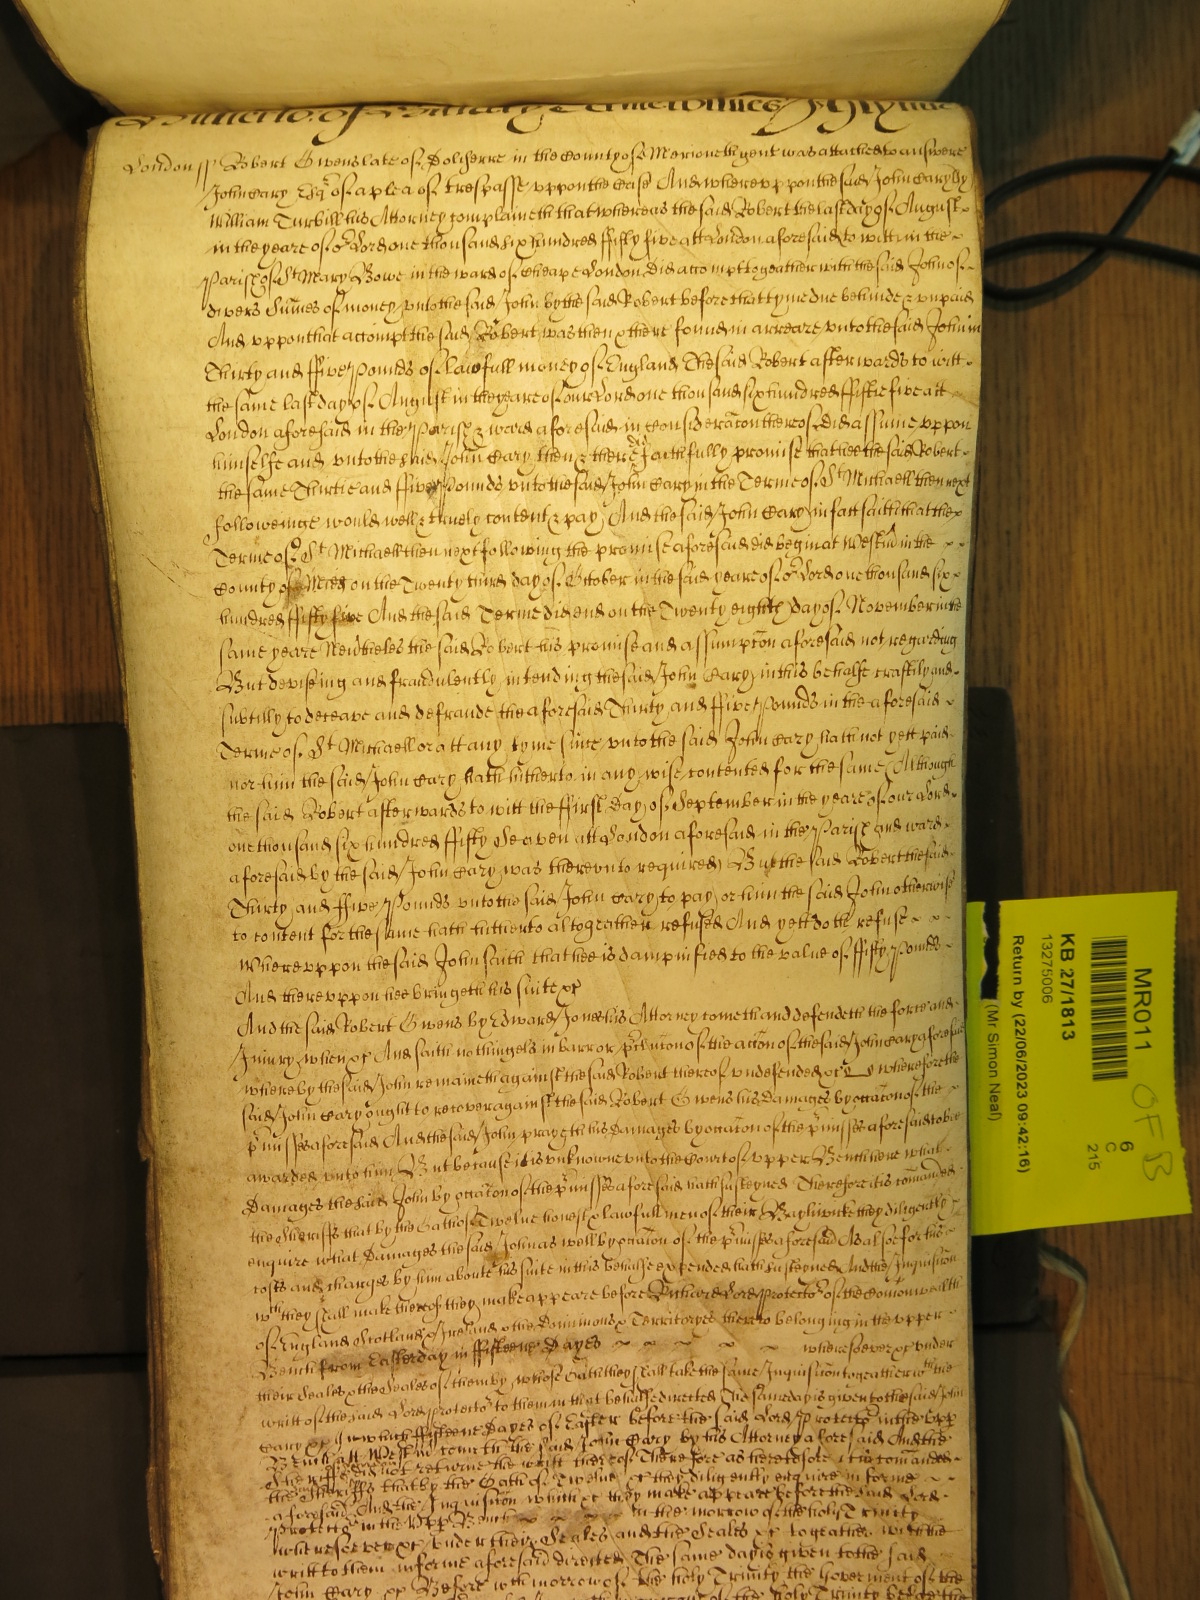 of Hillary Terme Wittnes J Glynne
London ss Robert Owens late of Dolserre in the County of Merioneth gent was attached to answere
John Cary Esqr of a plea of trespasse uppon the Case And whereuppon the said John Cary by
William Turbill his Attorney complaineth that whereas the said Robert the last day of August
in the yeare of or Lord one thousand six hundred ffifty five att London aforesaid to witt in the
Parish of St Mary Bowe in the ward of Cheape London did accompt togeather with the said John of
divers Summes of money unto the said John by the said Robert before that tyme due behinde & unpaid
And uppon that accompt the said Robert was then & there found in arreare unto the said John in
Thirty and ffive Pounds of lawfull money of England The said Robert afterwards to witt
the same last day of August in the yeare of our Lord one thousand six hundred ffiftie five att
London aforesaid in the Parish & ward aforesaid in Consideracon thereof did assume uppon
himselfe and unto the said John Cary then & there did faithfully promise that hee the said Robert
the same Thirtie and ffive Pounds unto the said John Cary in the Terme of St Michaell then next
followeinge would well & truely content & pay And the said John Cary in fact saith that the
Terme of St Michaell then next following the promise aforesaid did begin at Westm in the
County of Midd on the Twenty third day of October in the said yeare of or Lord one thousand six
hundred ffifty five And the said Terme did end on the Twenty eighth day of November in the
same yeare Nevtheles the said Robert his promise and assumpcon aforesaid not regarding
But deviseing and fraudulently intending the said John Cary in this behalfe craftily and
subtilly to deceave and defraude the aforesaid Thirty and ffive Pounds in the aforesaid
Terme of St Michaell or att any tyme since unto the said John Cary hath not yett paid
nor him the said John Cary hath hitherto in any wise contented for the same Although
the said Robert afterwards to witt the ffirst day of September in the yeare of our Lord
one thousand six hundred ffifty Seaven att London aforesaid in the Parish and ward
aforesaid by the said John Cary was thereunto required But the said Robert the said
Thirty and ffive Pounds unto the said John Cary to pay or him the said John otherwise
to content for the same hath hitherto altogeather refused And yett doth refuse
Whereuppon the said John saith that hee is dampnified to the value of ffifty Pounds
And thereuppon hee bringeth his suite &c
And the said Robert Owens by Edward Jones his Attorney cometh and defendeth the force and
Injury when &c And saith nothinge in barr or pclusion of the accon of the said John Cary aforesaid
whereby the said John remaineth against the said Robert thereof undefended &c wherefore the
said John Cary ought to recover against the said Robert Owens his damages by occacon of the
pmisses aforesaid And the said John prayeth his damages by occacon of the pmisses aforesaid to bee
awarded unto him But because it is unknowne unto the Court of upper Bench here what
Damages the said John by occacon of the pmisses aforesaid hath susteyned Therefore it is comanded
the Sheriffs that by the Oath of Twelve honest & lawfull men of their Bayliwicke they diligently
enquire what damages the said John as well by occacon of the pmisses aforesaid As alsoe for his
costs and charges by him aboute his suite in this behalfe expended hath susteyned And the Inquisicon
wch they shall make thereof they make appeare before Richard Lord Protector of the Comonwealth
of England Scotland & Ireland & the Dominions & Territoryes thereto belonging in the upper
Bench from Easter day in ffifteene Dayes wheresoever &c under
their seales & the seales of them by whose Oath they shall take the same Inquisicon togeather wth the
writt of the said Lord Protector to them in that behalfe directed The same day is given to the said John
Cary &c att which ffifteene Dayes of Easter before the said Lord Protector in the upp
Bench att Westm cometh the said John Cary by his Attorney aforesaid And the
Sheriffs did not returne the writt thereof Therefore as heretofore it is comanded
the Sheriffs that by the Oath of Twelve &c they diligently enquire in forme
aforesaid And the Inquisicon which &c they make appeare before the said Lord
Protector in the upp Bench in the morrow of the holy Trinity
wheresoever &c under their Seales and the Seales &c togeather with the
writt to them in forme aforesaid directed The same day is given to the said
John Cary &c Before wch morrow of the holy Trinity the Goverment of the
MR011
OF B
6
C
215
KB 27/1813
13275006
Return by (22/06/2023 09:42:16)
(Mr Simon Neal)